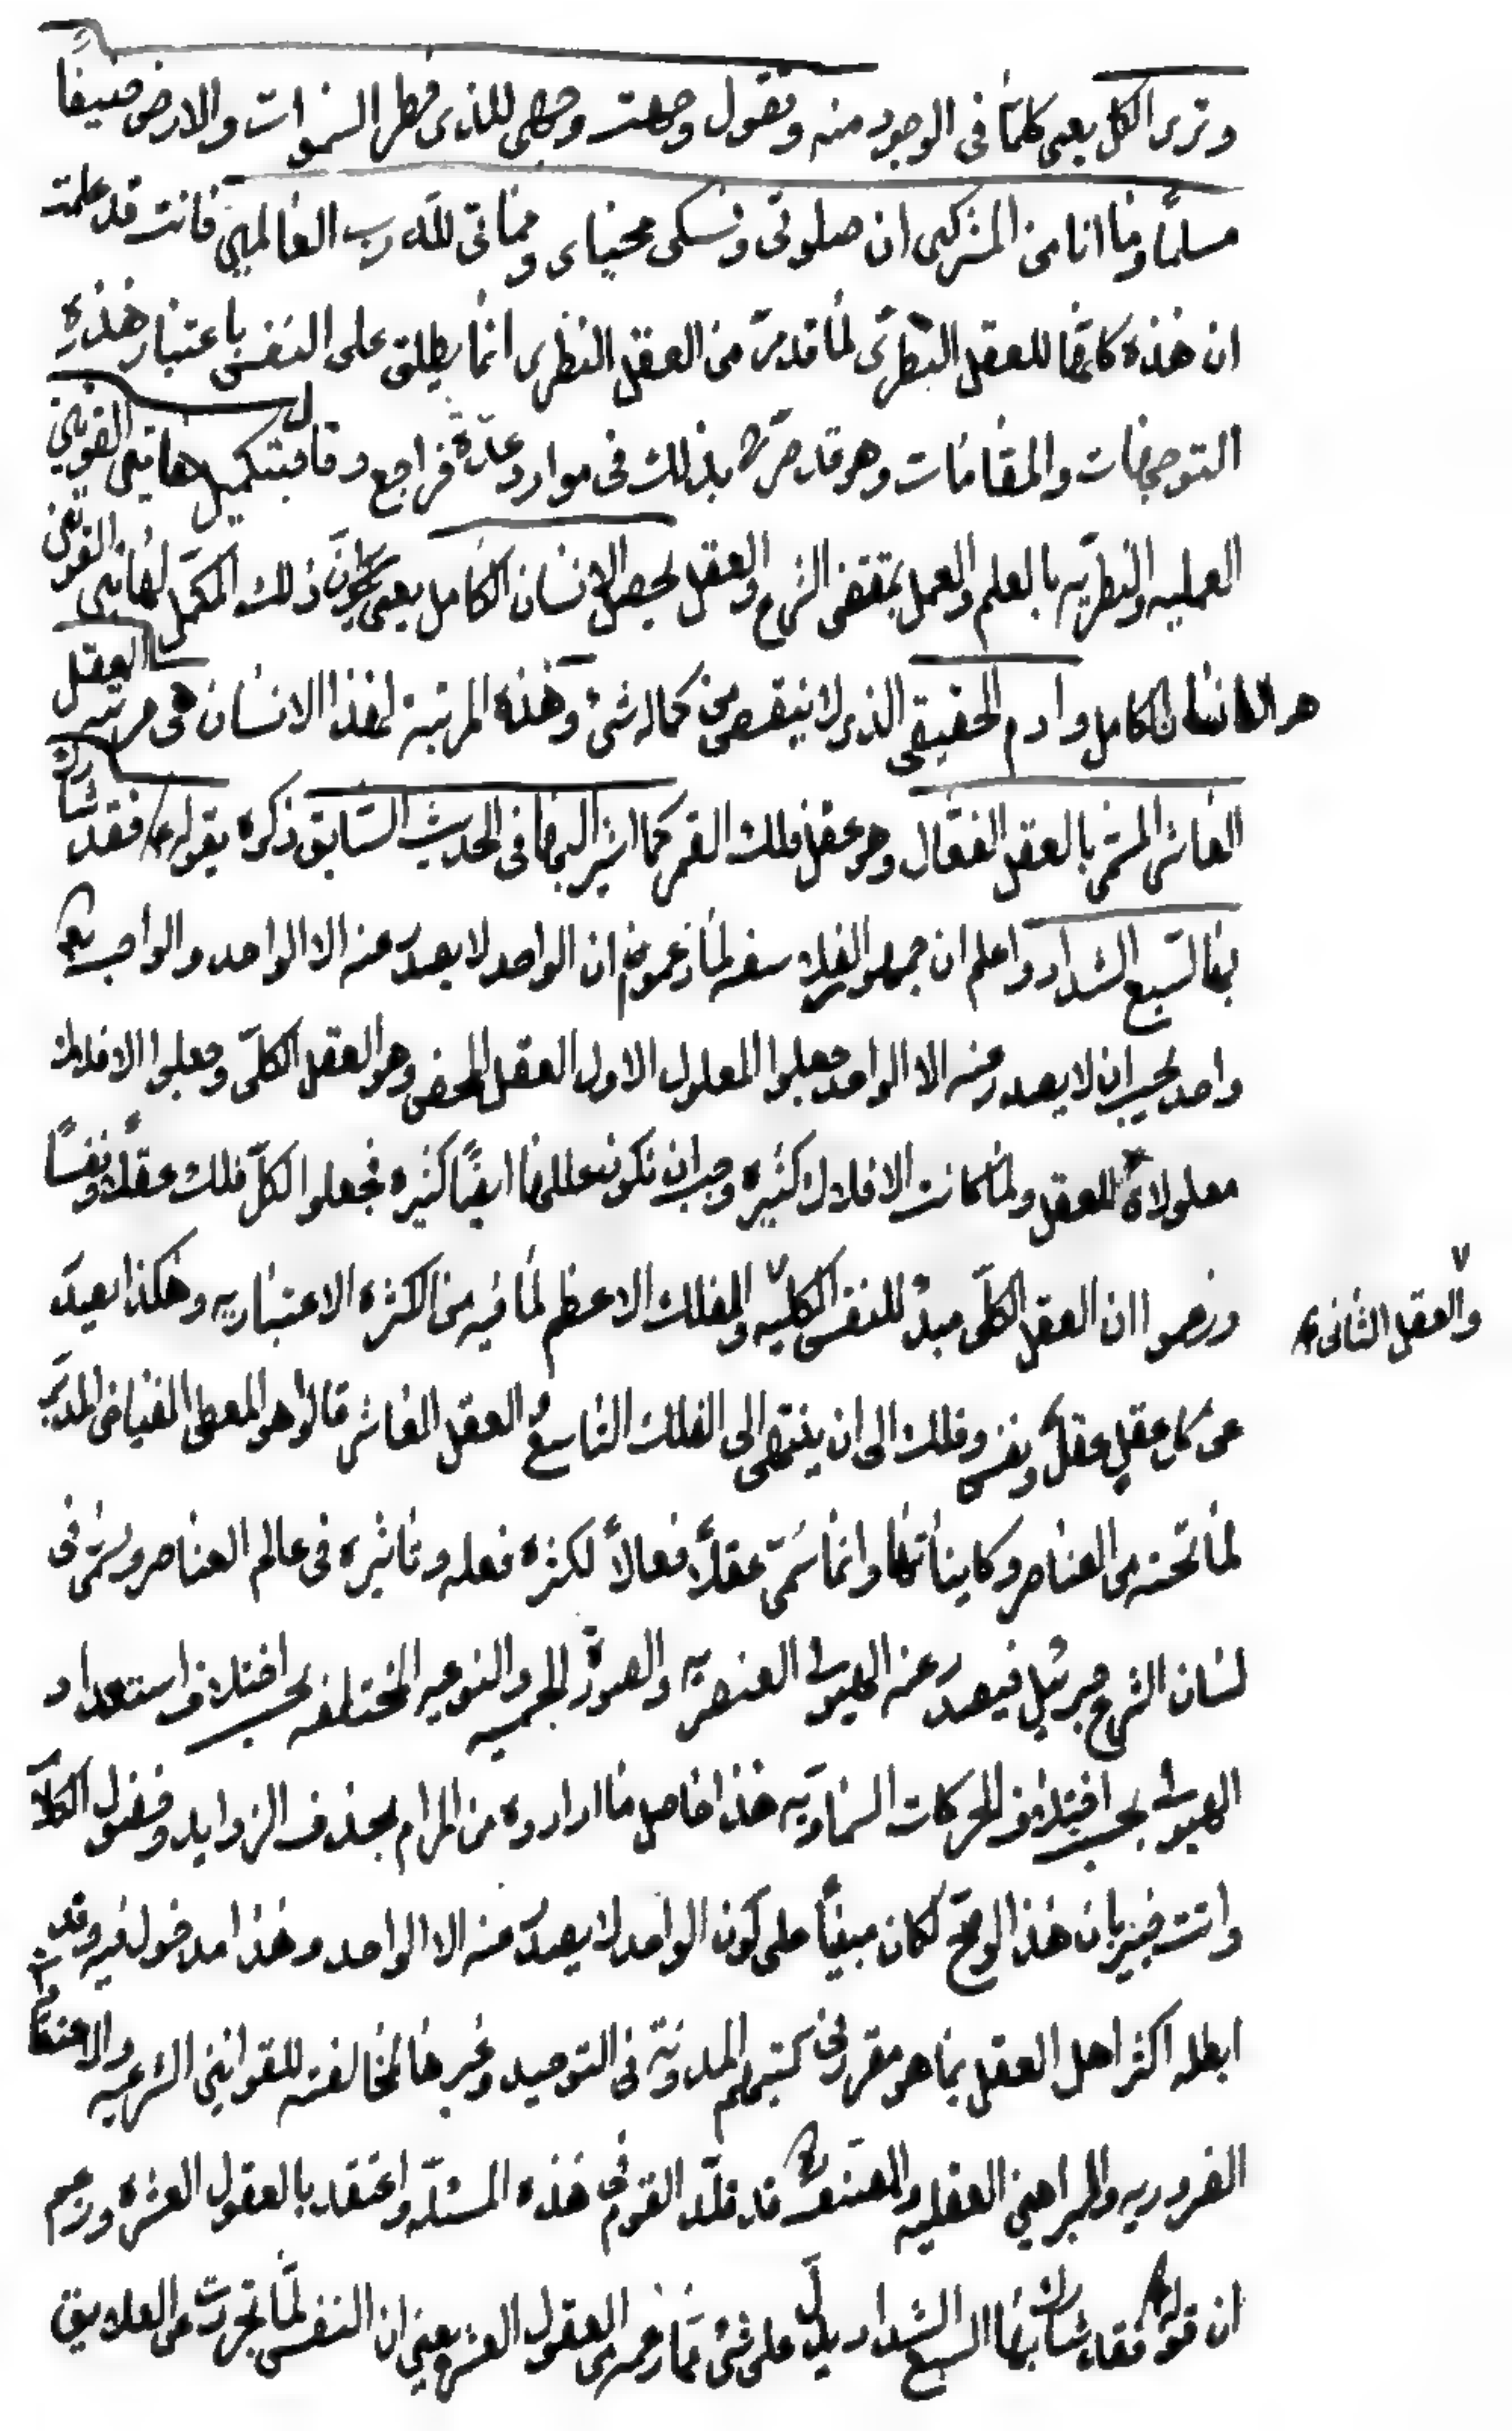 وترى الكل يعني كلما في الوجود منه وتقول وجهت وجهي للذي فطر السموات والارض حنيفًا
مسلمًا وما انا من المشركين ان صلوتي ونسكي ومحياى ومماتي لله رب العالمين فانت قد علمت
ان هذه كلها للعقل النظري لما قد مرّ من العقل النظري انما يطلق على النفس باعتبار هذه
التوجهات والمقامات وهو قد صرّح بذلك في موارد عدّة فراجع وقال بتكميل هاتين القوتين
العمليه والنظريّه بالعلم والعمل بمقتضى الشرع والعقل يحصل الانسان الكامل يعني يكون ذلك المكمّل لهاتين القوتين
هو الانسان الكامل وادم الحقيقي الذي لا ينقص من كماله شئ وهذه المرتبة لهذا الانسان هي مرتبه العقل
العاشر المسمّى بالعقل الفعّال وهو عقل فلك القمر كما اشير اليها في الحديث السّابق ذكره بقوله ع فقد شارك
بها السّبع الشداد واعلم ان جمهور الفلاسفه لما زعموا ان الواحد لا يصدر عنه الا الواحد والواجب تع
واحد يجب ان لا يصدر منه الا الواحد جعلوا المعلول الاول العقل المحض وهو العقل الكلّي وجعلوا الافلاك
معلولاة للعقل ولما كانت الافلاك كثيره وجب ان تكون عللها ايضًا كثيره فجعلوا الكلّ فلك عقلًا ونفسًا
وزعموا ان العقل الكلّي مبدء للنفس الكليّه والفلك الاعظم لما فيه من الكثره الاعتباريه وهكذا يصدر
والعقل الثاني
عن كل عقلٍ عقلٌ ونفس وفلك الى ان ينتهى الى الفلك التاسع والعقل العاشر قالوا هو المعطى الفياض المدبّر
لما تحته من العناصر وكايناتها وانما سُمّى عقلًا فعالًا لكثره فعله وتاثيره في عالم العناصر ويسمّى في
لسان الشرع جبرئيل فيصدر عنه الهيولى العنصريّه والصورة الجسميه والنوعيه المختلفه بحسب اختلاف استعداد
الهيولى بحسب اختلاف الحركات السماويّه هذا حاصل ما ارادوه من المرام بحذف الزوايد وفضول الكلام
وانت خبير بان هذا لو صحّ لكان مبنيًا على كون الواحد لا يصدر عنه الا الواحد وهذا مدخول فيه وقد
ابطله اكثر اهل العقل بما هو مقرر في كتبهم المدونّة في التوحيد وغيرها لمخالفته للقوانين الشرعيه والاعتقادات
الضروريه والبراهين العقليه والمصنف ره قد قلّد القوم في هذه المسئله واعتقد بالعقول العشره وزعم
ان قوله ع فقد شارك بها السبع الشداد يدلّ على شئ مما زعم من العقول العشره يعني ان النفس لمّا تجردت عن العلايق